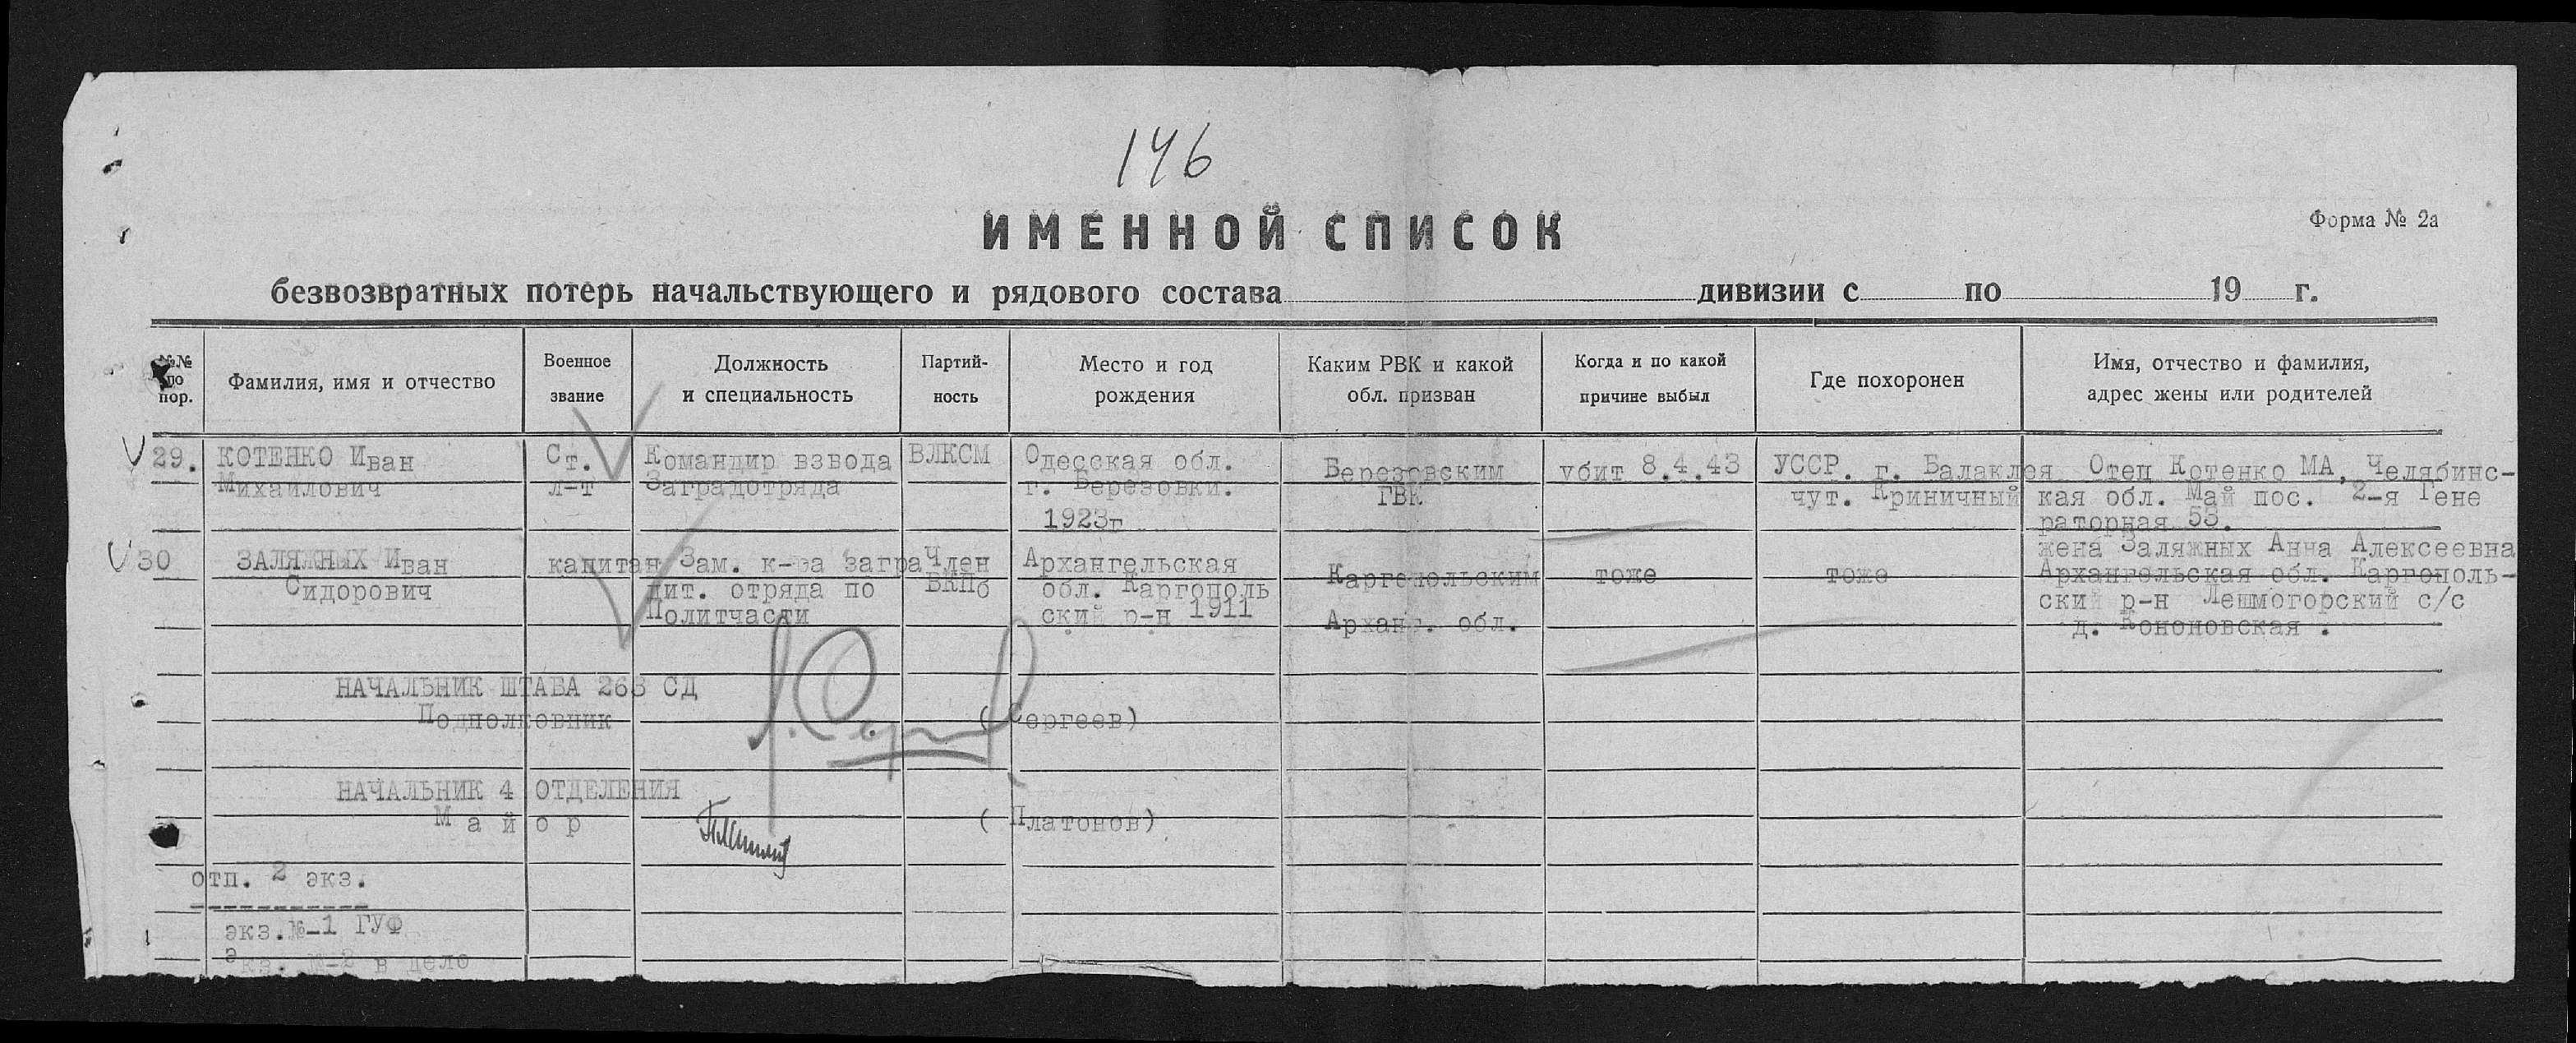 146
ИМЕННОЙ СПИСОК
Форма № 2а
безвозвратных потерь начальствующего и рядового состава дивизии с по 19 г.
№№ по пор.
Фамилия, имя и отчество
Военное звание
Должность и специальность
Партий-ность
Место и год рождения
Каким РВК и какой обл. призван
Когда и по какой причине выбыл
Где похоронен
Имя, отчество и фамилия, адрес жены или родителей
29. КОТЕНКО Иван Ст. Командир взвода ВЛКСМ Одесская обл. Березовским убит 8.4.43 УССР. г. Балаклея Отец Котенко МА, Челябинс-
Михайлович л-т Заградотряда г. Березовки. ГВК чут. Криничный кая обл. Май пос. 2-я Гене
1923г раторная 53.
жена Заляжных Анна Алексеевна
30 ЗАЛЯЖНЫХ Иван капитан Зам. к-ра загра Член Архангельская Каргопольским тоже тоже Архангельская обл. Каргополь-
Сидорович дит. отряда по ВКПб обл. Каргополь ский р-н Лешмогорский с/с
Политчасти ский р-н 1911 Арханг. обл. д. Кононовская .
НАЧАЛЬНИК ШТАБА 263 СД
Подполковник (Сергеев)
НАЧАЛЬНИК 4 ОТДЕЛЕНИЯ
Майор ( Платонов)
отп. 2 экз.
экз.№-1 ГУФ
экз. №-2 в дело